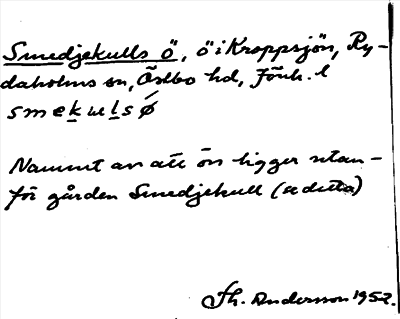 Smedjekulls ö, ö i Kroppsjön, Ry-
daholms sn, Östbo hd, Jönk. l
smekulsø
Namnet av att ön ligger utan-
för gården Smedjekull (a detta)
Th. Andersson 1952.